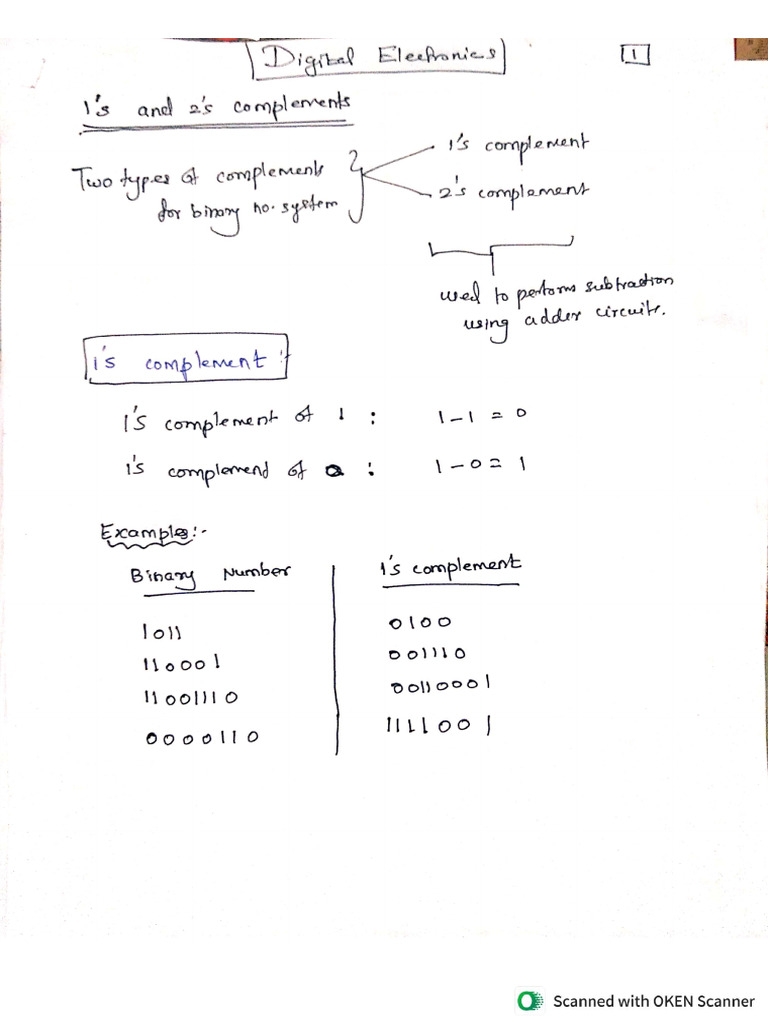 Digital Electronics
1
1's and 2's complements
Two types of complements
for binary no. system
1's complement
2's complement
used to perform subtraction
using adder circuits.
1's complement :-
1's complement of 1 : 1-1 = 0
1's complement of 0 : 1-0 = 1
Examples:-
Binary Number 1's complement
1011 0100
110001 001110
11001110 00110001
0000110 1111001
Scanned with OKEN Scanner